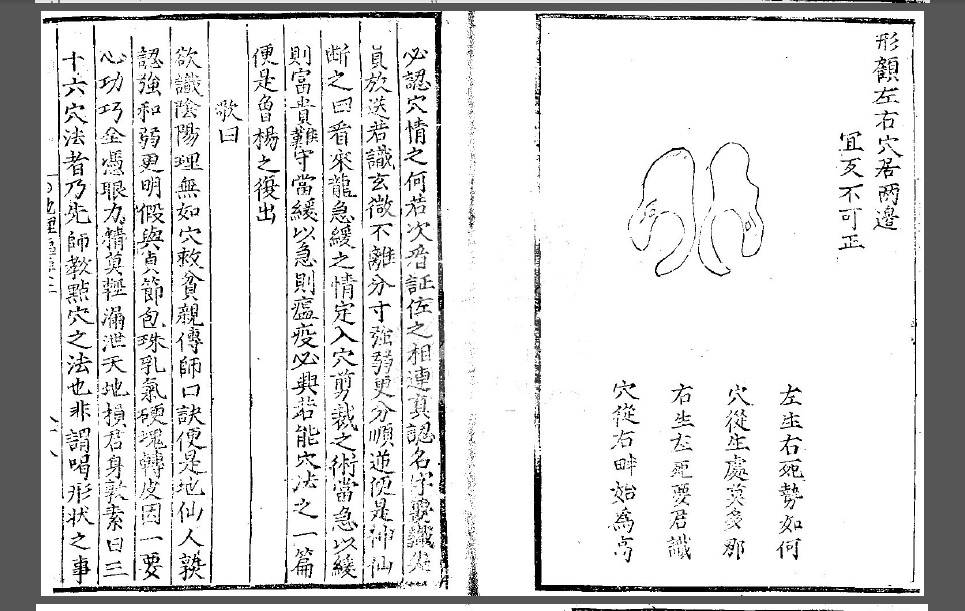 形顧左右穴居两邊
宜亥不可正
左生右死勢如何
穴從生處莫多那
右生左死要君識
穴從右畔始為高
必認穴情之何若次看証佐之相連真認名字要識
員放送若識玄微不離分寸強弱更分順逆便是神仙
断之曰看來龍急緩之情定入穴剪裁之術當急以緩
則富貴難守當緩以急則瘟疫必興若能穴法之一篇
便是曾楊之復出
歌曰
欲識陰陽理無如穴救貧親傳師口訣便是地仙人孰
認強和弱更明假與真節包珠乳氣硬塊轉皮因一要
心功巧全憑眼力精莫輕漏泄天地損君身敦素曰三
十六穴法者乃先師教點穴之法也非謂喝形状之事